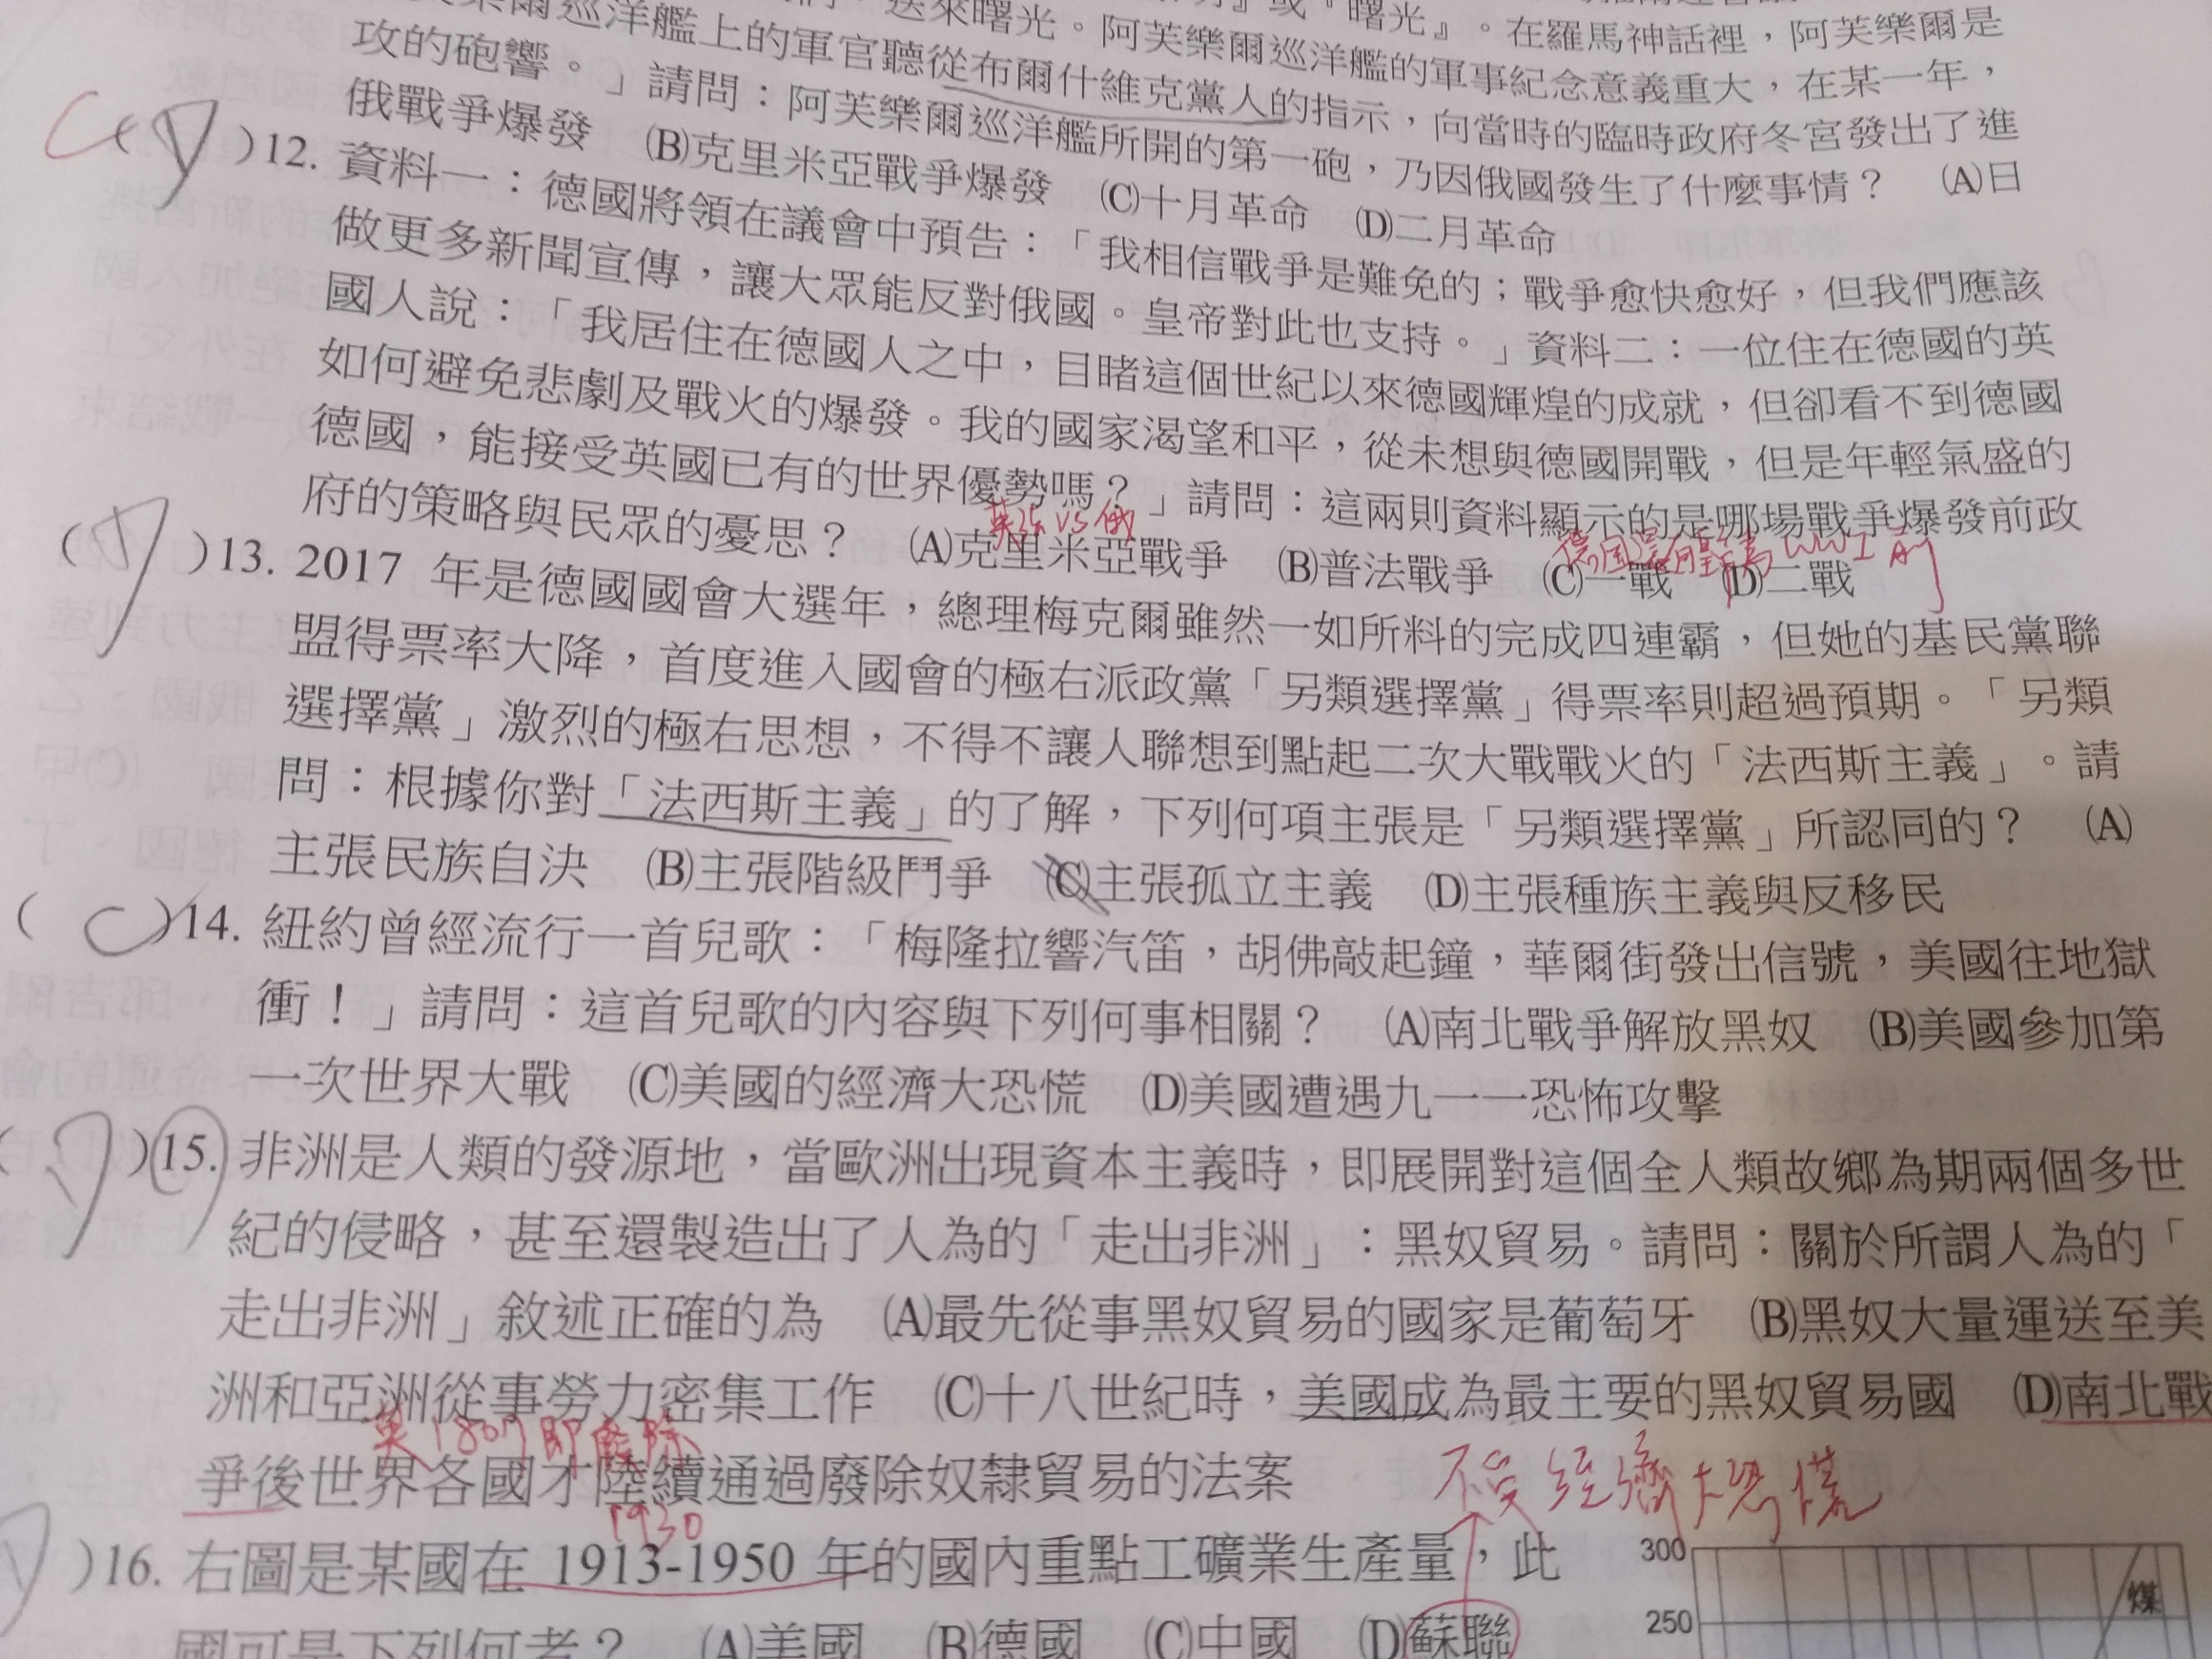 送來曙光。阿芙樂爾巡洋艦的軍事紀念意義重大，在某一年，
或『曙光』。在羅馬神話裡，阿芙樂爾是
巡洋艦上的軍官聽從布爾什維克黨人的指示，向當時的臨時政府冬宮發出了進
攻的砲響。」請問：阿芙樂爾巡洋艦所開的第一砲，乃因俄國發生了什麼事情？ (A)日
俄戰爭爆發 (B)克里米亞戰爭爆發 (C)十月革命 (D)二月革命
C
( D )12. 資料一：德國將領在議會中預告：「我相信戰爭是難免的；戰爭愈快愈好，但我們應該
做更多新聞宣傳，讓大眾能反對俄國。皇帝對此也支持。」資料二：一位住在德國的英
國人說：「我居住在德國人之中，目睹這個世紀以來德國輝煌的成就，但卻看不到德國
如何避免悲劇及戰火的爆發。我的國家渴望和平，從未想與德國開戰，但是年輕氣盛的
德國，能接受英國已有的世界優勢嗎？」請問：這兩則資料顯示的是哪場戰爭爆發前政
英法 vs 俄
府的策略與民眾的憂思？ (A)克里米亞戰爭 (B)普法戰爭 (C)一戰 (D)二戰
( D )13. 2017 年是德國國會大選年，總理梅克爾雖然一如所料的完成四連霸，但她的基民黨聯
盟得票率大降，首度進入國會的極右派政黨「另類選擇黨」得票率則超過預期。「另類
選擇黨」激烈的極右思想，不得不讓人聯想到點起二次大戰戰火的「法西斯主義」。請
問：根據你對「法西斯主義」的了解，下列何項主張是「另類選擇黨」所認同的？ (A)
主張民族自決 (B)主張階級鬥爭 (C)主張孤立主義 (D)主張種族主義與反移民
( C )14. 紐約曾經流行一首兒歌：「梅隆拉響汽笛，胡佛敲起鐘，華爾街發出信號，美國往地獄
衝！」請問：這首兒歌的內容與下列何事相關？ (A)南北戰爭解放黑奴 (B)美國參加第
一次世界大戰 (C)美國的經濟大恐慌 (D)美國遭遇九一一恐怖攻擊
( )15. 非洲是人類的發源地，當歐洲出現資本主義時，即展開對這個全人類故鄉為期兩個多世
紀的侵略，甚至還製造出了人為的「走出非洲」：黑奴貿易。請問：關於所謂人為的「
走出非洲」敘述正確的為 (A)最先從事黑奴貿易的國家是葡萄牙 (B)黑奴大量運送至美
洲和亞洲從事勞力密集工作 (C)十八世紀時，美國成為最主要的黑奴貿易國 (D)南北戰
英 1807 即廢除
爭後世界各國才陸續通過廢除奴隸貿易的法案
不受經濟大恐慌
1930
)16. 右圖是某國在 1913-1950 年的國內重點工礦業生產量，此
國可是下列何者？ (A)美國 (B)德國 (C)中國 (D)蘇聯
300
250
煤